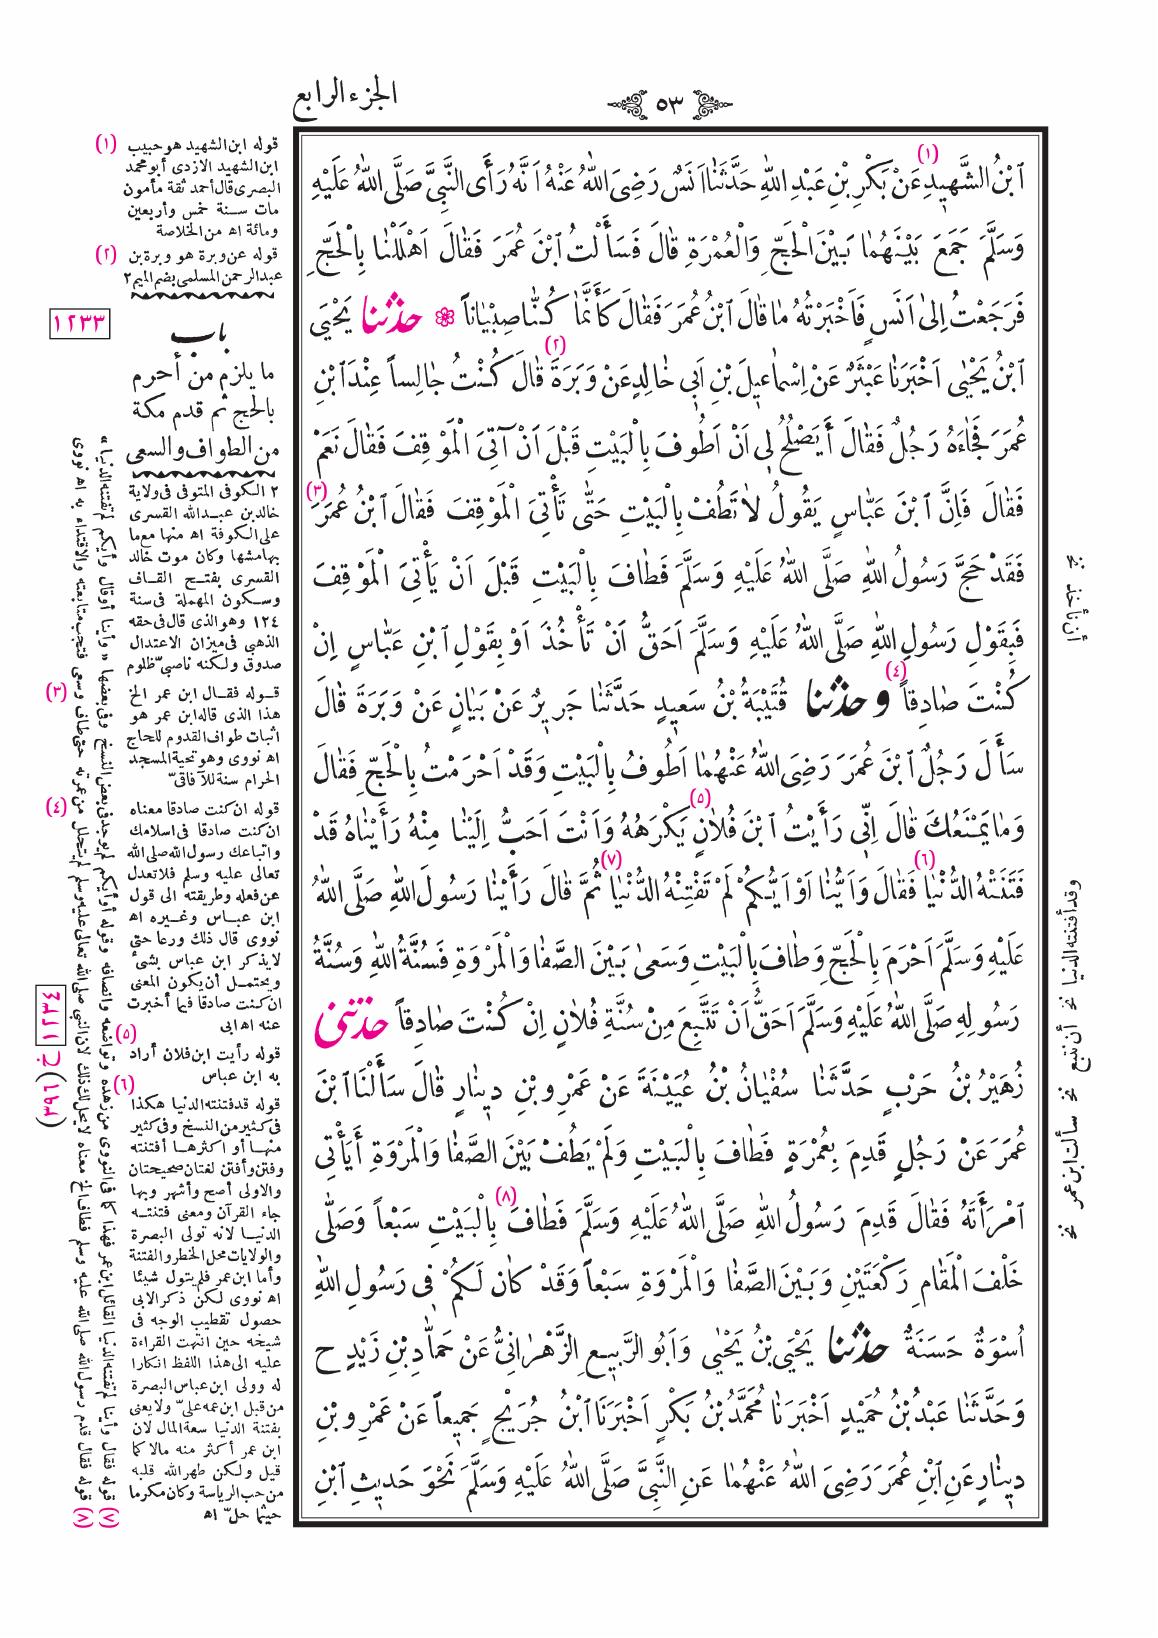 الجزء الرابع
٥٣
(١)
ٱبْنُ الشَّهٖيدِ عَنْ بَكْرِ بْنِ عَبْدِ اللّٰهِ حَدَّثَنَا اَنَسٌ رَضِىَ اللّٰهُ عَنْهُ اَنَّهُ رَأَى النَّبِىَّ صَلَّى اللّٰهُ عَلَيْهِ
وَسَلَّمَ جَمَعَ بَيْنَهُمٰا بَيْنَ الْحَجِّ وَالْعُمْرَةِ قٰالَ فَسَأَلْتُ ٱبْنَ عُمَرَ فَقٰالَ اَهْلَلْنٰا بِالْحَجِّ
فَرَجَعْتُ اِلىٰ اَنَسٍ فَاَخْبَرْتُهُ مٰا قٰالَ ٱبْنُ عُمَرَ فَقٰالَ كَأَنَّمٰا كُنّٰا صِبْيٰاناً ❁ حدثنا يَحْيَى
(٢)
ٱبْنُ يَحْيٰى اَخْبَرَنٰا عَبْثَرٌ عَنْ اِسْمٰاعٖيلَ بْنِ اَبٖى خٰالِدٍ عَنْ وَبَرَةَ قٰالَ كُنْتُ جٰالِساً عِنْدَ ٱبْنِ
عُمَرَ فَجٰاءَهُ رَجُلٌ فَقٰالَ أَيَصْلُحُ لٖى اَنْ اَطُوفَ بِالْبَيْتِ قَبْلَ اَنْ آتِىَ الْمَوْقِفَ فَقٰالَ نَعَمْ
(٣)
فَقٰالَ فَاِنَّ ٱبْنَ عَبّٰاسٍ يَقُولُ لاٰتَطُفْ بِالْبَيْتِ حَتّٰى تَأْتِىَ الْمَوْقِفَ فَقٰالَ ٱبْنُ عُمَرَ
فَقَدْ حَجَّ رَسُولُ اللّٰهِ صَلَّى اللّٰهُ عَلَيْهِ وَسَلَّمَ فَطٰافَ بِالْبَيْتِ قَبْلَ اَنْ يَأْتِىَ الْمَوْقِفَ
فَبِقَوْلِ رَسُولِ اللّٰهِ صَلَّى اللّٰهُ عَلَيْهِ وَسَلَّمَ اَحَقُّ اَنْ تَأْخُذَ اَوْ بِقَوْلِ ٱبْنِ عَبّٰاسٍ اِنْ
(٤)
كُنْتَ صٰادِقاً وحدثنا قُتَيْبَةُ بْنُ سَعٖيدٍ حَدَّثَنٰا جَرٖيرٌ عَنْ بَيٰانٍ عَنْ وَبَرَةَ قٰالَ
سَأَلَ رَجُلٌ ٱبْنَ عُمَرَ رَضِىَ اللّٰهُ عَنْهُمٰا اَطُوفُ بِالْبَيْتِ وَقَدْ اَحْرَمْتُ بِالْحَجِّ فَقٰالَ
(٥)
وَمٰا يَمْنَعُكَ قٰالَ اِنّٖى رَأَيْتُ ٱبْنَ فُلاٰنٍ يَكْرَهُهُ وَاَنْتَ اَحَبُّ اِلَيْنٰا مِنْهُ رَأَيْنٰاهُ قَدْ
(٦)
(٧)
فَتَنَتْهُ الدُّنْيٰا فَقٰالَ وَاَيُّنٰا اَوْ اَيُّكُمْ لَمْ تَفْتِنْهُ الدُّنْيٰا ثُمَّ قٰالَ رَأَيْنٰا رَسُولَ اللّٰهِ صَلَّى اللّٰهُ
عَلَيْهِ وَسَلَّمَ اَحْرَمَ بِالْحَجِّ وَطٰافَ بِالْبَيْتِ وَسَعىٰ بَيْنَ الصَّفٰا وَالْمَرْوَةِ فَسُنَّةُ اللّٰهِ وَسُنَّةُ
رَسُولِهِ صَلَّى اللّٰهُ عَلَيْهِ وَسَلَّمَ اَحَقُّ اَنْ تَتَّبِعَ مِنْ سُنَّةِ فُلاٰنٍ اِنْ كُنْتَ صٰادِقاً حدثنى
زُهَيْرُ بْنُ حَرْبٍ حَدَّثَنٰا سُفْيٰانُ بْنُ عُيَيْنَةَ عَنْ عَمْرِو بْنِ دٖينٰارٍ قٰالَ سَأَلْنَا ٱبْنَ
عُمَرَ عَنْ رَجُلٍ قَدِمَ بِعُمْرَةٍ فَطٰافَ بِالْبَيْتِ وَلَمْ يَطُفْ بَيْنَ الصَّفٰا وَالْمَرْوَةِ أَيَأْتِى
(٨)
ٱمْرَأَتَهُ فَقٰالَ قَدِمَ رَسُولُ اللّٰهِ صَلَّى اللّٰهُ عَلَيْهِ وَسَلَّمَ فَطٰافَ بِالْبَيْتِ سَبْعاً وَصَلّٰى
خَلْفَ الْمَقٰامِ رَكْعَتَيْنِ وَبَيْنَ الصَّفٰا وَالْمَرْوَةِ سَبْعاً وَقَدْ كٰانَ لَكُمْ فٖى رَسُولِ اللّٰهِ
اُسْوَةٌ حَسَنَةٌ حدثنا يَحْيَى بْنُ يَحْيٰى وَاَبُو الرَّبٖيعِ الزَّهْرٰانِىُّ عَنْ حَمّٰادِ بْنِ زَيْدٍ ح
وَحَدَّثَنٰا عَبْدُ بْنُ حُمَيْدٍ اَخْبَرَنٰا مُحَمَّدُ بْنُ بَكْرٍ اَخْبَرَنَا ٱبْنُ جُرَيْجٍ جَمٖيعاً عَنْ عَمْرِو بْنِ
دٖينٰارٍ عَنِ ٱبْنِ عُمَرَ رَضِىَ اللّٰهُ عَنْهُمٰا عَنِ النَّبِىِّ صَلَّى اللّٰهُ عَلَيْهِ وَسَلَّمَ نَحْوَ حَدٖيثِ ٱبْنِ
أن نأخذ نخ
وقد أفتنته الدنيا نخ
أن نتبع نخ
سألت ابن عمر نخ
(١) قوله ابن الشهيد هو حبيب
ابن الشهيد الازدى أبو محمد
البصرى قال أحمد ثقة مأمون
مات سنة خمس وأربعين
ومائة اه من الخلاصة
(٢) قوله عن وبرة هو وبرة بن
عبدالرحمن المسلمى بضم الميم ٢
١٢٣٣
باب
ما يلزم من أحرم
بالحج ثم قدم مكة
من الطواف والسعى
٢ الكوفى المتوفى فى ولاية
خالد بن عبدالله القسرى
على الكوفة اه منها مع ما
بهامشها وكان موت خالد
القسرى بفتح القاف
وسكون المهملة فى سنة
١٢٤ وهو الذى قال فى حقه
الذهبى فى ميزان الاعتدال
صدوق ولكنه ناصبىّ ظلوم
(٣) قوله فقال ابن عمر الخ
هذا الذى قاله ابن عمر هو
اثبات طواف القدوم للحاج
اه نووى وهو تحية المسجد
الحرام سنة للآفاقىّ
(٤) قوله ان كنت صادقا معناه
ان كنت صادقا فى اسلامك
واتباعك رسول الله صلى الله
تعالى عليه وسلم فلا تعدل
عن فعله وطريقته الى قول
ابن عباس وغيره اه
نووى قال ذلك ورعا حتى
لا يذكر ابن عباس بشىء
ويحتمل أن يكون المعنى
ان كنت صادقا فيما أخبرت
عنه اه ابى
(٥)
قوله رأيت ابن فلان أراد
به ابن عباس
(٦)
قوله قد فتنته الدنيا هكذا
فى كثير من النسخ وفى كثير
منها أو اكثرها أفتنته
وفتن وأفتن لغتان صحيحتان
والاولى أصح وأشهر وبها
جاء القرآن ومعنى فتنته
الدنيا لانه تولى البصرة
والولايات محل الخطر والفتنة
وأما ابن عمر فلم يتول شيئا
اه نووى لكن ذكر الابى
حصول تقطيب الوجه فى
شيخه حين انتهت القراءة
عليه الى هذا اللفظ انكارا
له وولى ابن عباس البصرة
من قبل ابن عمه علىّ ولا يعنى
بفتنة الدنيا سعة المال لان
ابن عمر أكثر منه مالا كما
قيل ولكن طهر الله قلبه
من حب الرياسة وكان مكرما
حيثما حلّ اه
(٧) قوله فقال وأينا لم تفتنه الدنيا القائل ابن عمر فهذا كما فى النووى من زهده وتواضعه وانصافه وقوله أو أيكم لم يوجد فى بعض النسخ وفى بعضها « وأينا أو قال وأيكم لم تفتنه الدنيا »
(٨) قوله فقال قدم رسول الله صلى الله عليه وسلم فطاف الخ معناه لا يحل لك ذلك لان النبى صلى الله تعالى عليه وسلم لم يتحلل من عمرته حتى طاف وسعى فتجب متابعته والاقتداء به اه نووى